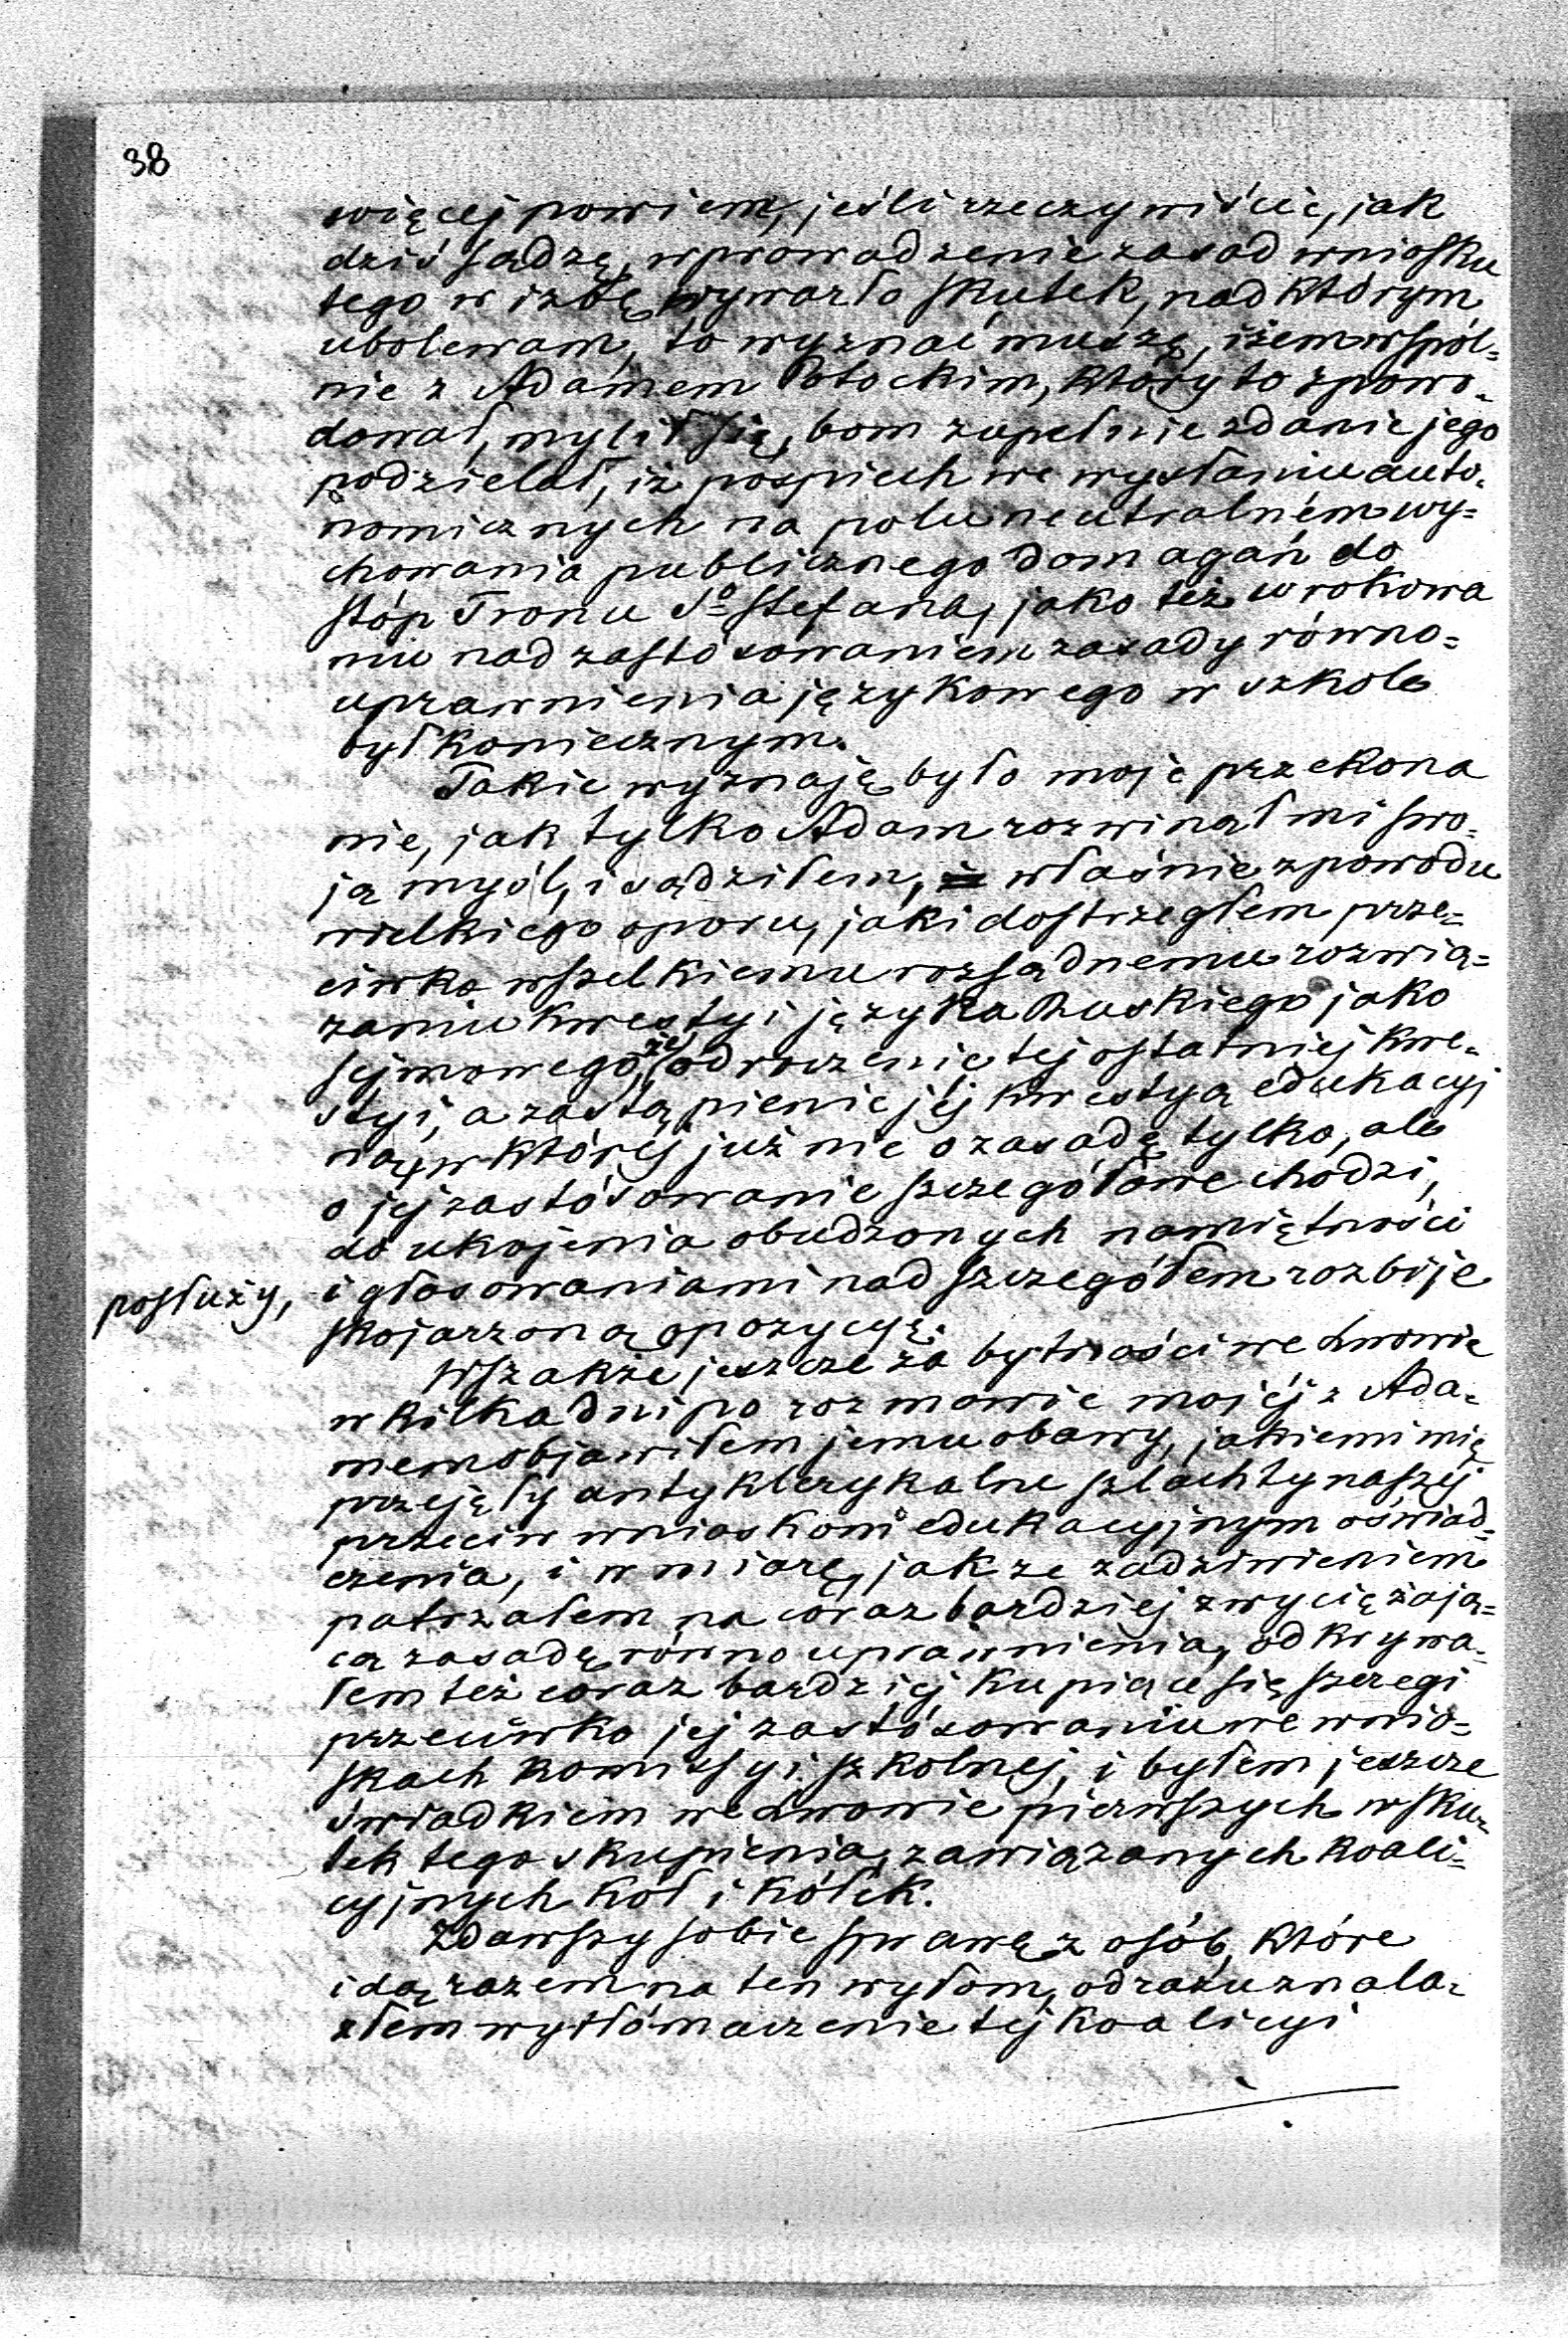 38
więcej powiem, jeśli rzeczywiście, jak
dziś sądzę, wprowadzenie zasad wniosku
tego w izbę wywarło skutek, nad którym
ubolewam, to wyznać muszę, iżem wspól=
nie z Adamem Potockim, który to spowo=
dował, mylił się, bom zupełnie zdanie jego
podzielał, iż pośpiech we wysłaniu auto=
nomicznych na polu neutralném wy=
chowania publicznego domagań do
stóp Tronu Sº Stefana, jako też w rokowa
niu nad zastósowaniem zasady równo=
uprawnienia językowego w szkole
był koniecznym.
Takie wyznaję było moje przekona
nie, jak tylko Adam rozwinął mi swo=
ją myśl, i sądziłem, właśnie z powodu
wielkiego oporu, jaki dostrzegłem prze=
ciwko wszelkiemu rozsądnemu rozwią=
zaniu kwestyi języka Ruskiego jako
sejmowego, że odroczenie tej ostatniej kwe=
styi, a zastąpienie jéj kwestyą edukacyj
ną, w której już nie o zasadę tylko, ale
o jej zastósowanie szczegółowe chodzi,
do ukojenia obudzonych namiętności
posłuży, i głosowaniami nad szczegółem rozbije
skojarzoną opozycyę.
Wszakże jeszcze za bytności we Lwowie
w kilka dni po rozmowie mojéj z Ada=
mem objawiłem jemu obawy, jakiemi mię
przejęły antyklerykalne szlachty naszéj
przeciw wnioskom edukacyjnym oświad=
czenia, i w miarę, jak ze zadziwieniem
patrzałem na coraz bardziej zwyciężają=
cą zasadę równouprawnienia, odkrywa=
łem też coraz bardziej kupiące się szeregi
przeciwko jej zastósowaniu we wnio=
skach komissyi szkolnéj, i byłem jeszcze
świadkiem we Lwowie pierwszych wsku=
tek tego skupienia, zawiązanych koali=
cyjnych kół i kółek.
Zdawszy sobie sprawę z osób, które
idą razem na ten wyłom, odrazu znala=
złem wytłómaczenie téj koalicyi